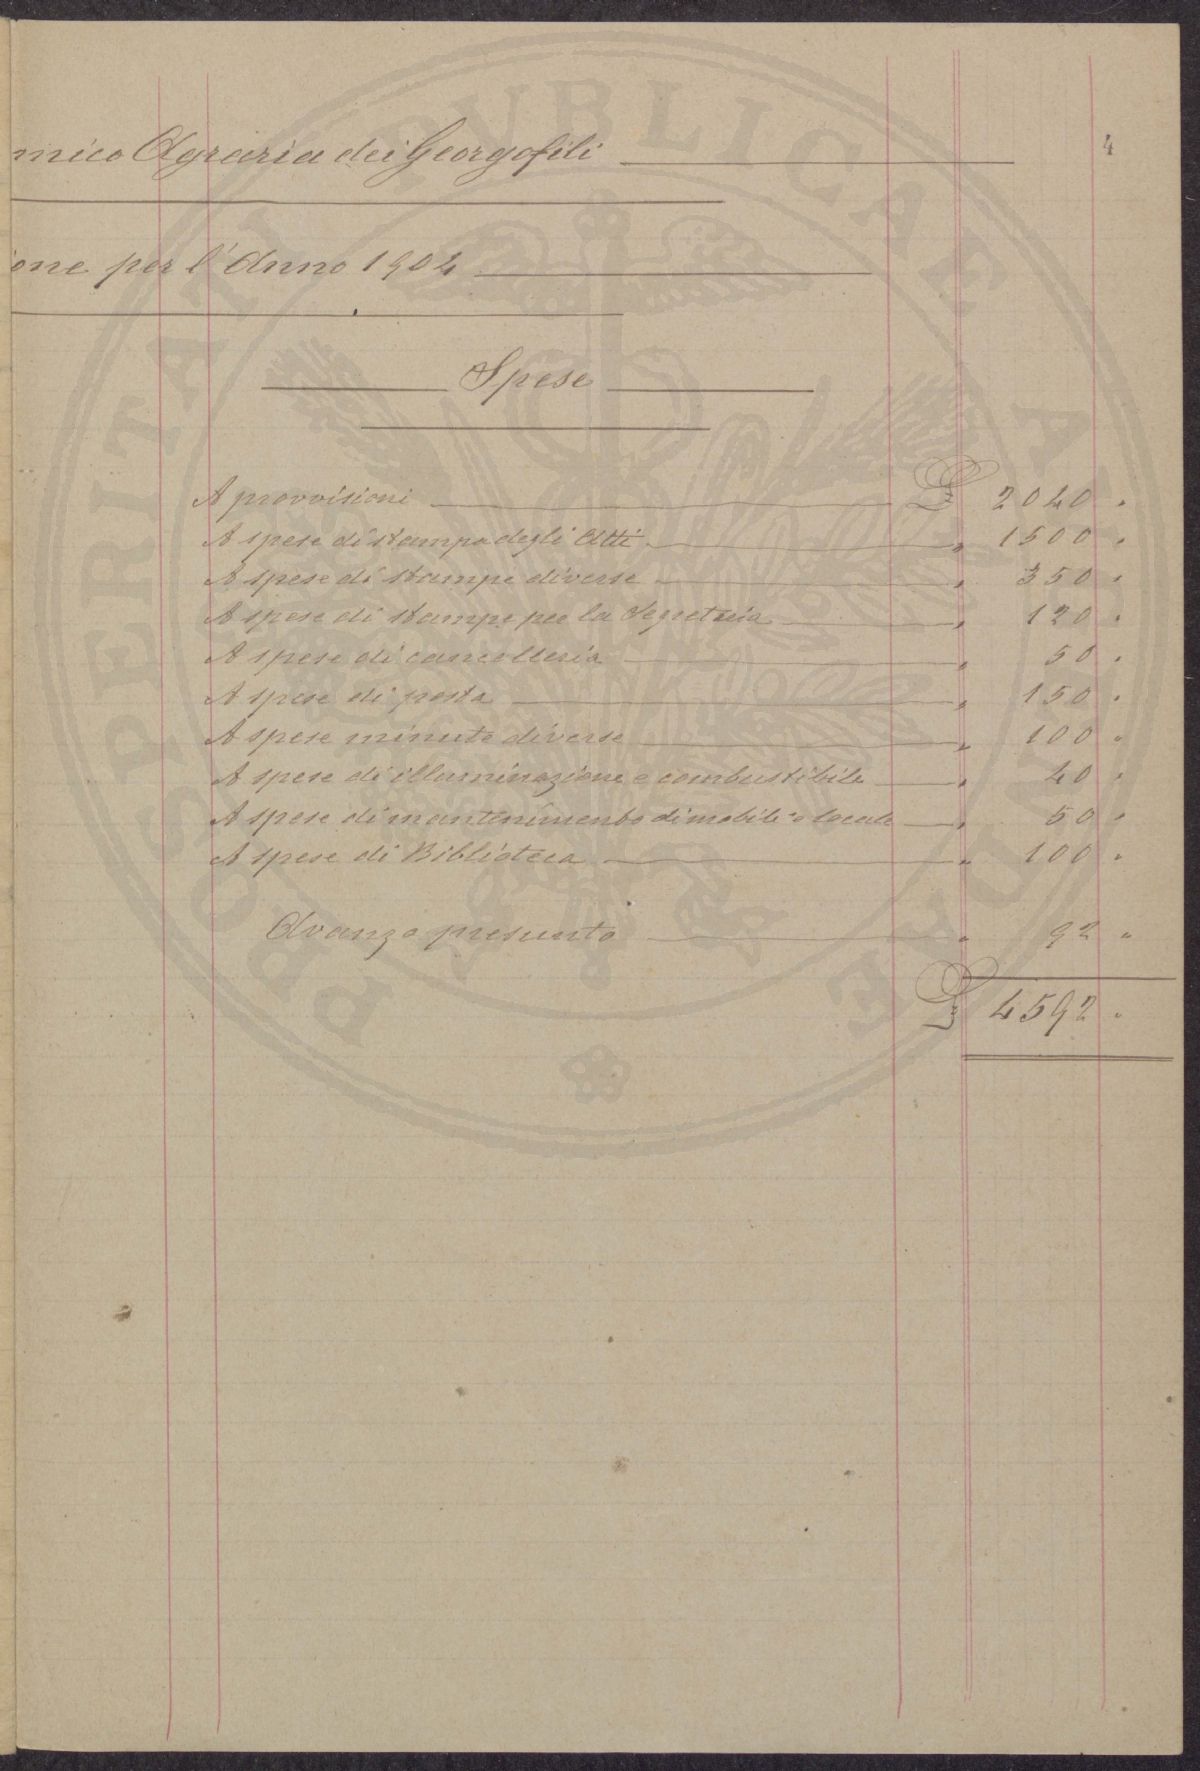 4
mico Agraria dei Georgofili
one per l'Anno 1904
Spese
A provvisioni £ 2040 "
A spese di stampa degli Atti " 1500 "
A spese di stampe diverse " 350 "
A spese di stampe per la Segreteria " 120 "
A spese di cancelleria " 50 "
A spese di posta " 150 "
A spese minute diverse " 100 "
A spese di illuminazione e combustibile " 40 "
A spese di mantenimento di mobili e locale " 50 "
A spese di Biblioteca " 100 "
Avanzo presunto " 92 "
£ 4592 "
PROSPERITATI PVBLICAE AVGENDAE